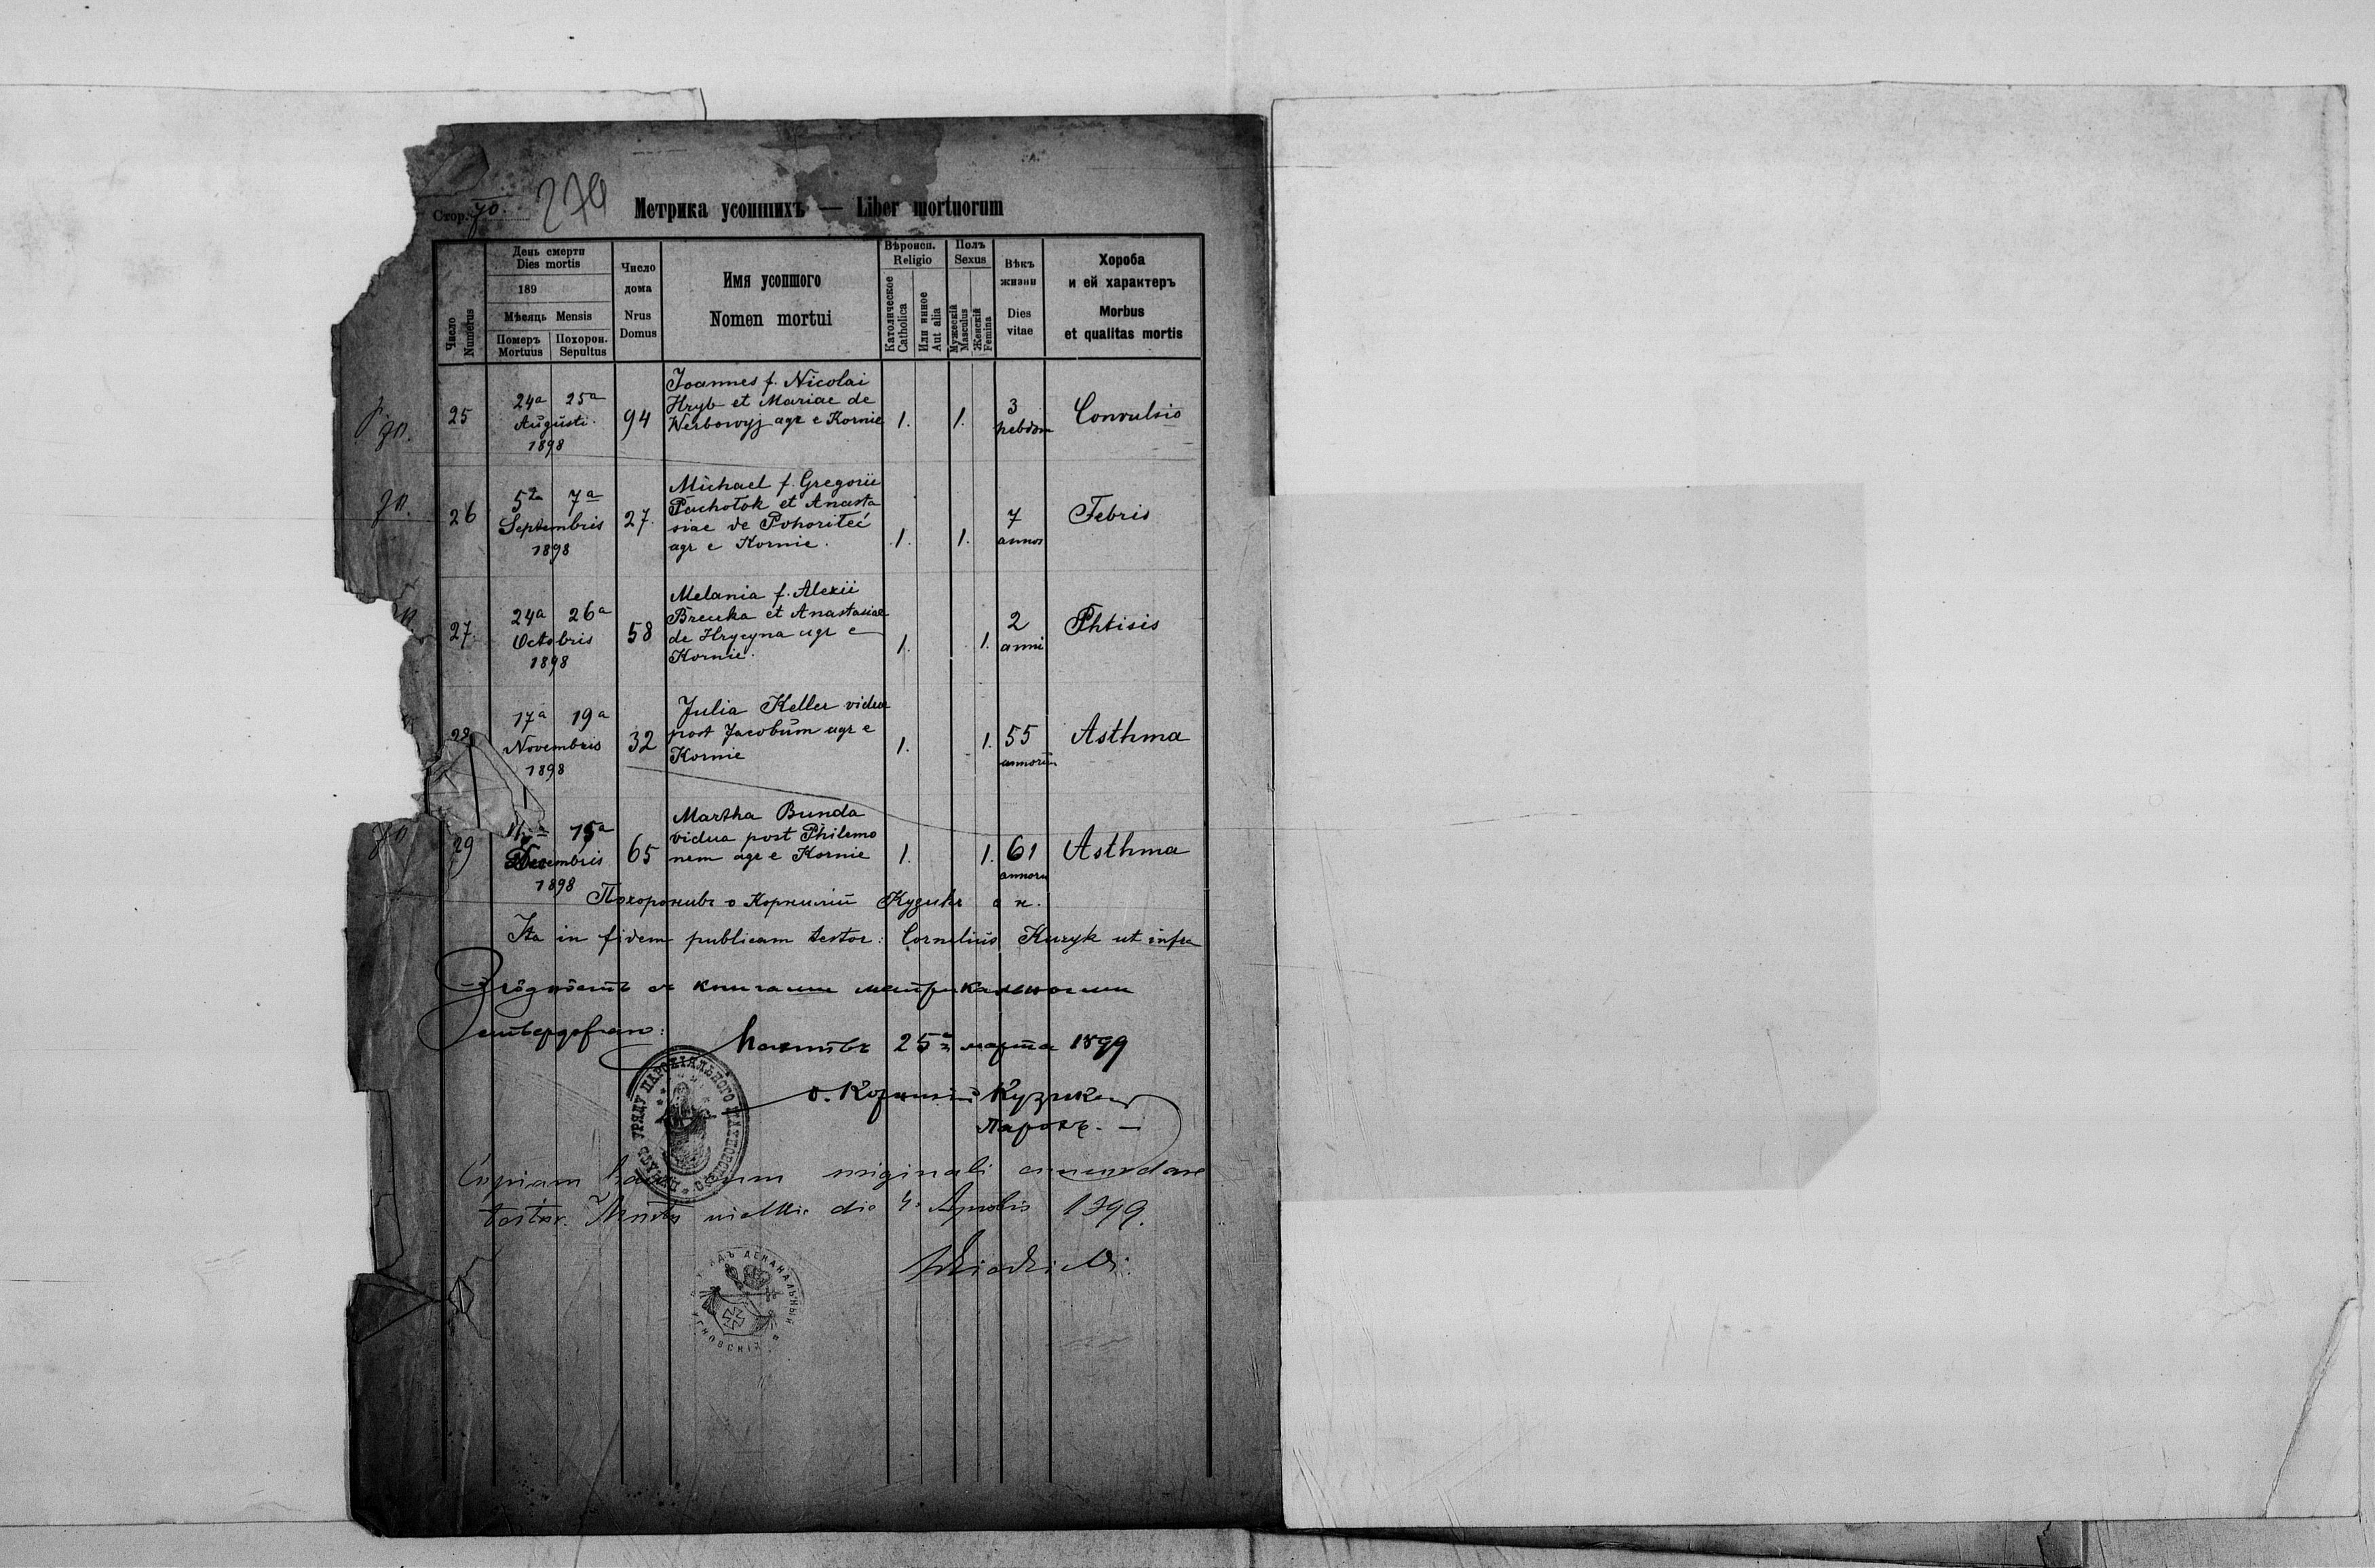 Стор. 70.
279
Метрика усопшихъ — Liber mortuorum
Число
Numerus
День смерти
Dies mortis
189
Мѣсяць Mensis
Померъ
Mortuus
Похорон.
Sepultus
Число
дома
Nrus
Domus
Имя усопшого
Nomen mortui
Вѣроисп.
Religio
Католическое
Catholica
Или инное
Aut alia
Полъ
Sexus
Мужескій
Masculus
Женскій
Femina
Вѣкъ
жизни
Dies
vitae
Хороба
и ей характеръ
Morbus
et qualitas mortis
25
24a 25a
Augusti
1898
94
Joannes f. Nicolai
Hryb et Mariae de
Werbowyj agr e Kornie
1. 1.
3
hebdom
Convulsio
26
5ta 7a
Septembris
1898
27.
Michael f. Gregorii
Pachotok et Anasta
siae de Pohorilec
agr e Kornie.
1. 1.
7
annos
Febris
27.
24a 26a
Octobris
1898
58
Melania f. Alexii
et Anastasiae
de Hrycyna agr e
Kornie.
1. 1.
2
anni
Phtisis
28
17a 19a
Novembris
1898
32
Julia Keller vidua
post Jacobum agr e
Kornie
1. 1.
55
annorum
Asthma
29
15a
Decembris
1898
65
Martha Bunda
vidua post Philemo
nem agr e Kornie
1. 1.
61
annoru
Asthma
Похоронивъ о Корнилій
Ita in fidem publicam testor: Cornelius Kuzyk ut infra
Згôдность съ книгами метрикальными
25 марта 1899
о. Корнилій Кузыкъ
парохъ. —
Copiam cum originali concordare
testor. die 4 Aprilis 1899.